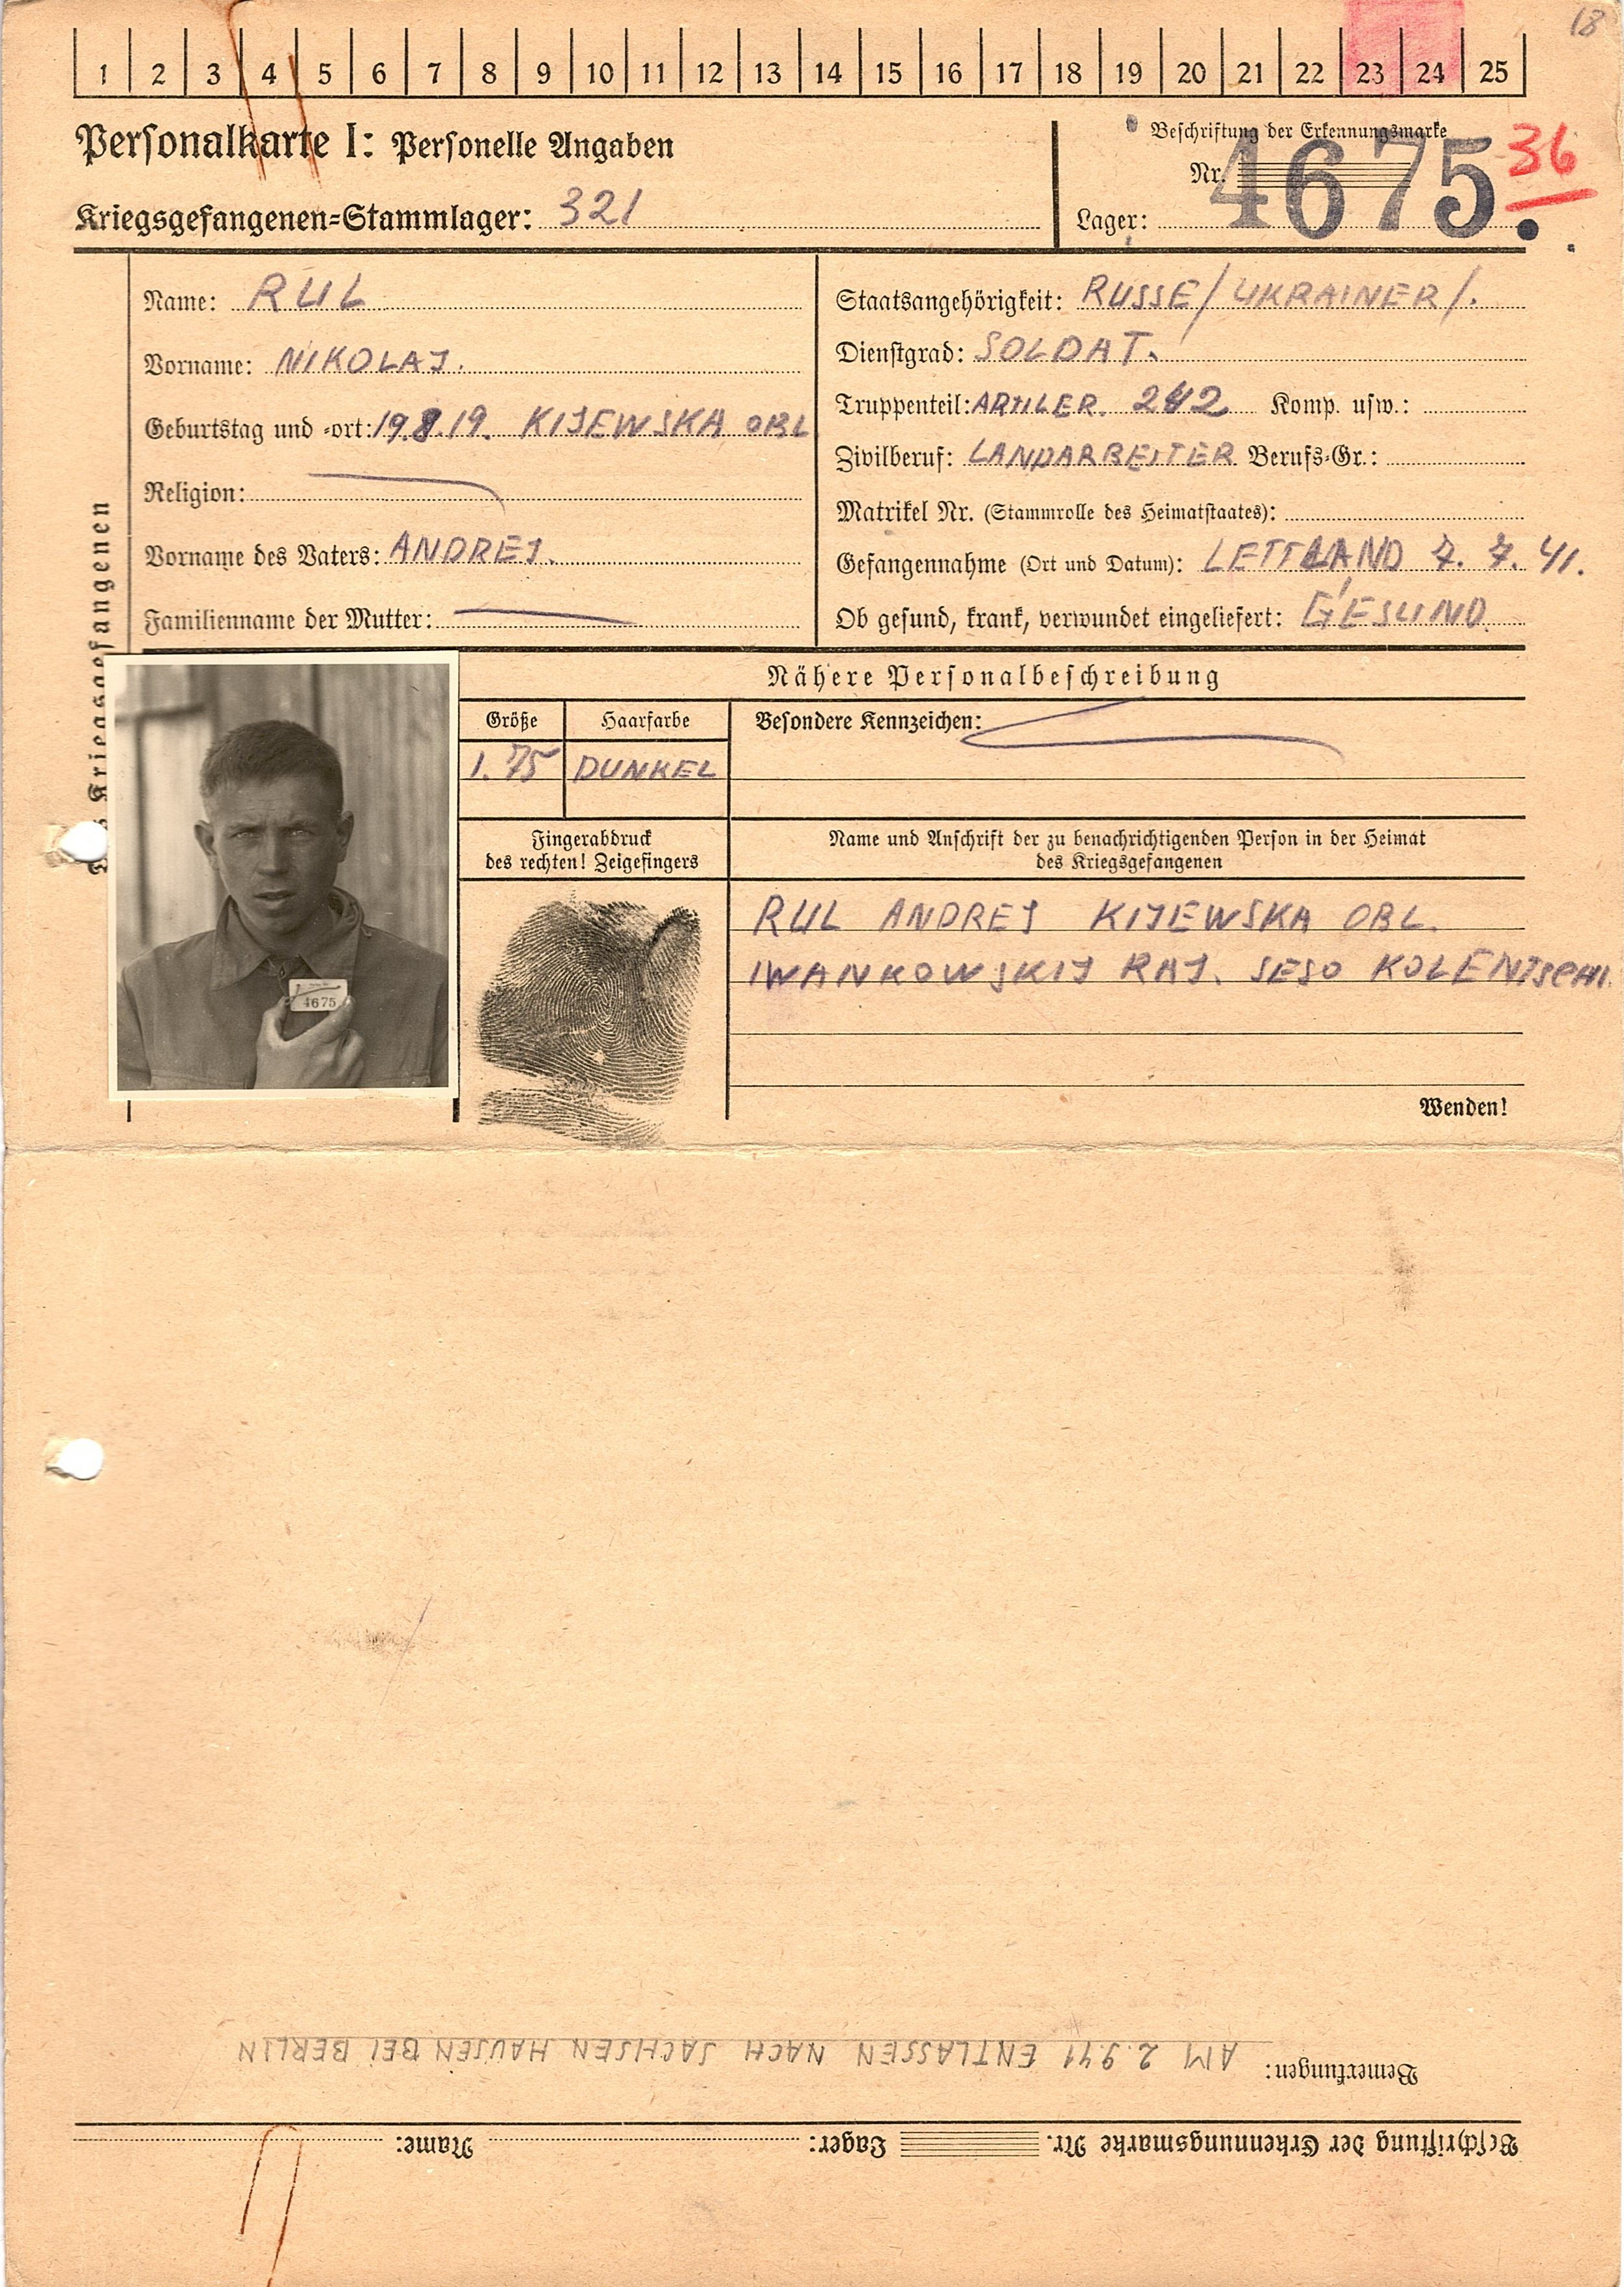 18
1 2 3 4 5 6 7 8 9 10 11 12 13 14 15 16 17 18 19 20 21 22 23 24 25
Personalkarte I: Personelle Angaben
Kriegsgefangenen-Stammlager: 321
Beschriftung der Erkennungsmarke
Nr. 4675. 36
Lager:
des Kriegsgefangenen
Name: RUL
Vorname: NIKOLAJ.
Geburtstag und -ort: 19.8.19. KIJEWSKA OBL
Religion:
Vorname des Vaters: ANDREJ.
Familienname der Mutter:
Staatsangehörigkeit: RUSSE/UKRAINER/.
Dienstgrad: SOLDAT.
Truppenteil: ARTILER. 242 Komp. usw.:
Zivilberuf: LANDARBEITER Berufs-Gr.:
Matrikel Nr. (Stammrolle des Heimatstaates):
Gefangennahme (Ort und Datum): LETTLAND 7. 7. 41.
Ob gesund, krank, verwundet eingeliefert: GESUND
4675
Nähere Personalbeschreibung
Größe Haarfarbe Besondere Kennzeichen:
1.75 DUNKEL
Fingerabdruck
des rechten! Zeigefingers
Name und Anschrift der zu benachrichtigenden Person in der Heimat
des Kriegsgefangenen
RUL ANDREJ KIJEWSKA OBL.
IWANKOWSKIJ RAJ. SESO KOLENTSCHI.
Wenden!
Beschriftung der Erkennungsmarke Nr. Lager: Name:
Bemerkungen: AM 2.9.41 ENTLASSEN NACH SACHSEN HAUSEN BEI BERLIN